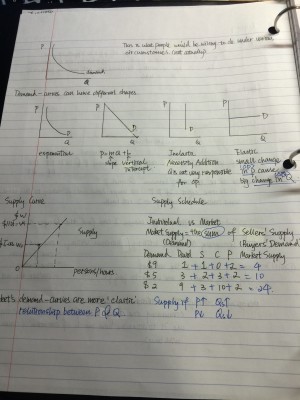 P
This is what people would be willing to do under various
circumstances (not steady).
Demand
Q
Demand-curves can have different shapes.
P P P P
D D D D
Q Q Q Q
exponential p=mQ+b Inelastic Elastic
slope vertical intercept
Necessity, Addition small change
Qs not very responsible in P cause
for Δp. big change in
Supply Curve Supply Schedule
Individual vs Market
Market supply = the sum of Sellers' Supply
(Demand) (Buyers' Demand)
Supply
Demand David S C P Market Supply
$9 1 + 1 + 0 + 2 = 4
$5 3 + 2 + 3 + 2 = 10
$2 9 + 3 + 10 + 2 = 24
0 persons/hours
demand-curves are more "elastic" Supply if P↑ Qs↑
relationship between P & Q P↓ Qs↓